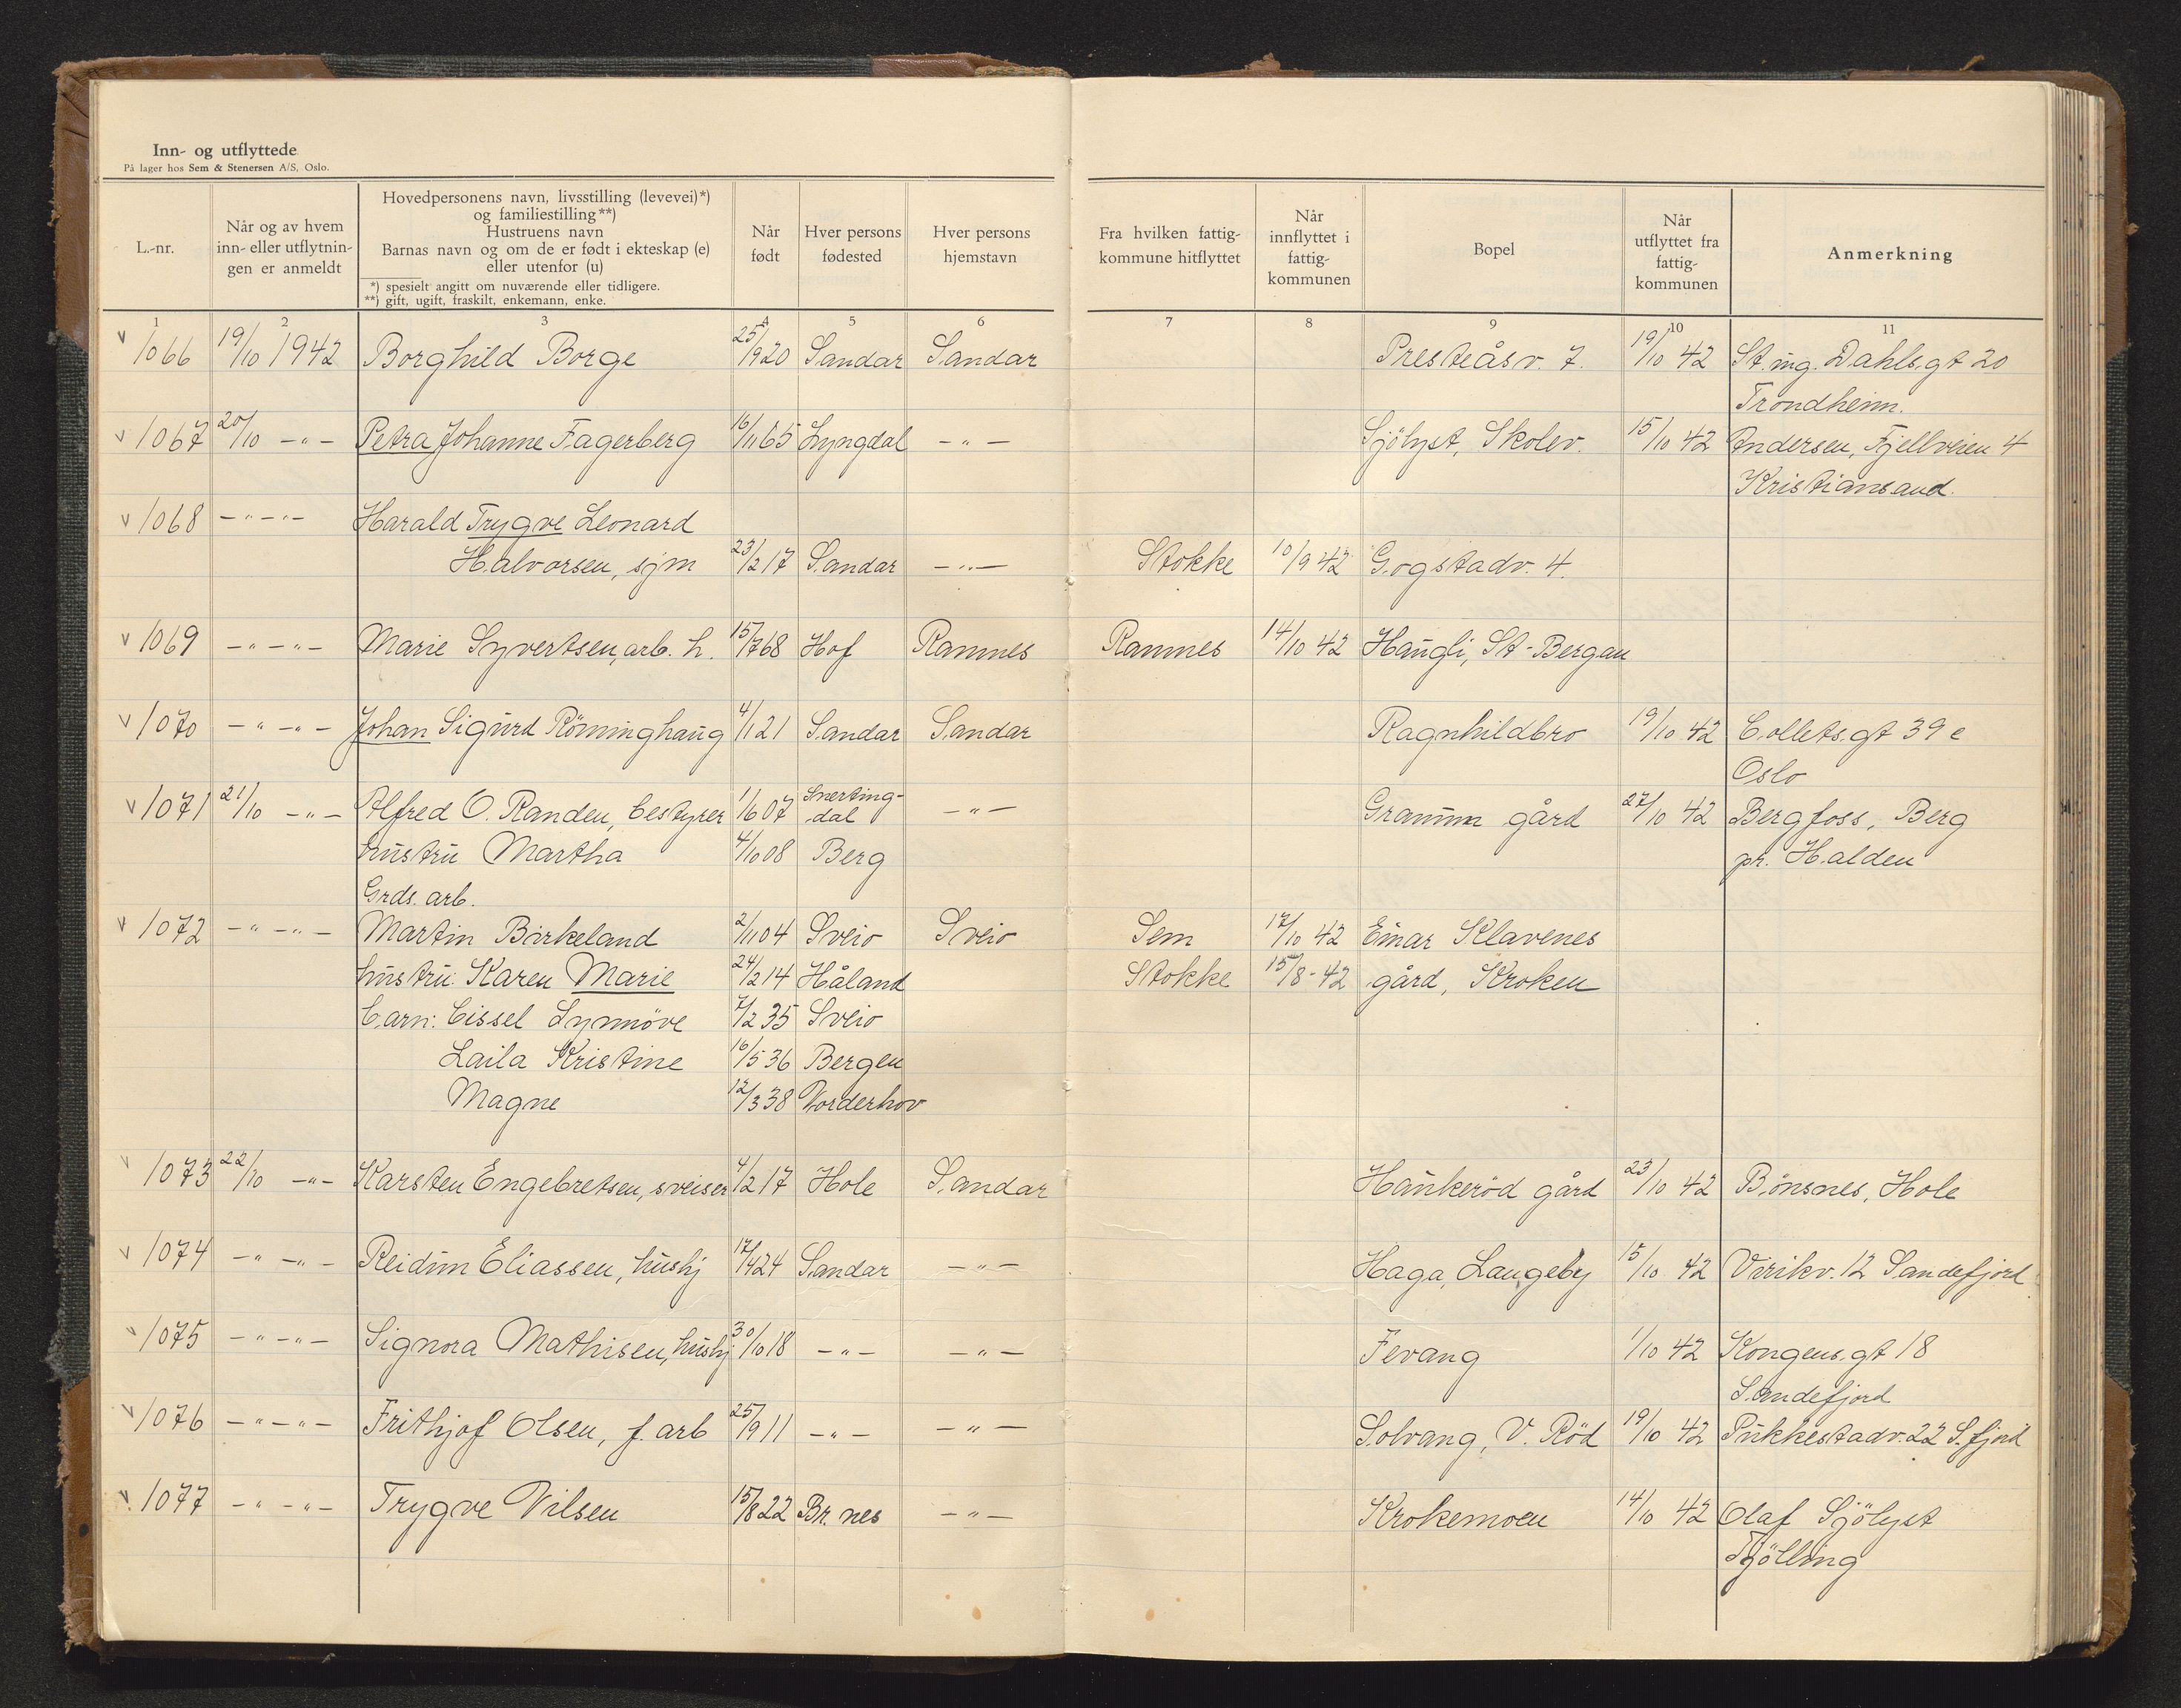 Inn- og utflyttede
På lager hos Sem & Stenersen A/S, Oslo.
L.-nr.
Når og av hvem
inn- eller utflytnin-
gen er anmeldt
Hovedpersonens navn, livsstilling (levevei)*)
og familiestilling**)
Hustruens navn
Barnas navn og om de er født i ekteskap (e)
eller utenfor (u)
*) spesielt angitt om nuværende eller tidligere.
**) gift, ugift, fraskilt, enkemann, enke.
Når
født
Hver persons
fødested
Hver persons
hjemstavn
Fra hvilken fattig-
kommune hitflyttet
Når
innflyttet i
fattig-
kommunen
Bopel
Når
utflyttet fra
fattig-
kommunen
Anmerkning
1 2 3 4 5 6 7 8 9 10 11
v 1066 19/10 1942 Borghild Borge 25/9 20 Sandar Sandar Presteåsv. 7. 19/10 42 St.mg. Dahls.gt 20
Trondheim.
v 1067 20/10 -"- Petra Johanne Fagerberg 16/11 65 Lyngdal -"- Sjölyst, Skolev. 15/10 42 Andersen, Fjellveien 4
Kristiansand.
v 1068 -"-"- Harald Trygve Leonard
Halvorsen, sjm 23/2 17 Sandar -"- Stokke 10/9 42 Gogstadv. 4.
v 1069 -"-"- Marie Syvertsen, arb. h. 15/7 68 Hof Ramnes Ramnes 14/10 42 Haugli, St-Bergan
v 1070 -"-"- Johan Sigurd Rönninghaug 4/1 21 Sandar Sandar Ragnhildbro 19/10 42 Collets.gt 39 e
Oslo
v 1071 21/10 -"- Alfred O. Randen, bestyrer 1/6 07 Snerting-
dal -"- Gramm gård 27/10 42 Bergfoss, Berg
hustru Martha 4/10 08 Berg pr. Halden
Grds. arb.
v 1072 -"-"- Martin Birkeland 2/11 04 Sveio Sveio Sem 17/10 42 Einar Klavenes
hustru: Karen Marie 24/2 14 Håland Stokke 15/8-42 gård, Kroken
barn: Cissel Synnöve 7/2 35 Sveio
Laila Kristine 16/5 36 Bergen
Magne 12/3 38 Norderhov
v 1073 22/10 -"- Karsten Engebretsen, sveiser 4/2 17 Hole Sandar Haukeröd gård 23/10 42 Bönsnes, Hole
v 1074 -"-"- Reidun Eliassen, hushj 17/4 24 Sandar -"- Haga, Langeby 15/10 42 Virikv. 12 Sandefjord
v 1075 -"-"- Signora Mathisen, hushj 30/10 18 -"- -"- Fevang 1/10 42 Kongens.gt 18
Sandefjord
v 1076 -"-"- Frithjof Olsen, f. arb 25/9 11 -"- -"- Solvang, V. Röd 19/10 42 Pukkestadv. 22 S.fjord
v 1077 -"-"- Trygve Nilsen 15/8 22 Br. nes -"- Krokemoen 14/10 42 Olaf Sjölyst
Tjölling